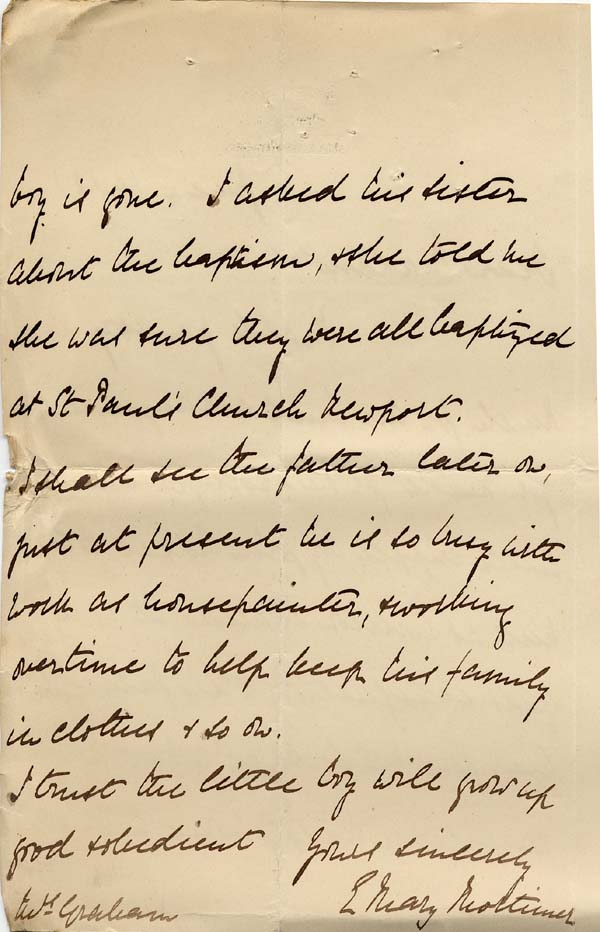 boy is gone. I asked his sister
about the baptism, & she told me
she was sure they were all baptized
at St Paul's Church Newport.
I shall see the father later on,
just at present he is so busy with
work as housepainter, & working
overtime to help keep his family
in clothes & so on.
I trust the little boy will grow up
good & obedient Yours sincerely
E Mary Mortimer
Mrs Graham